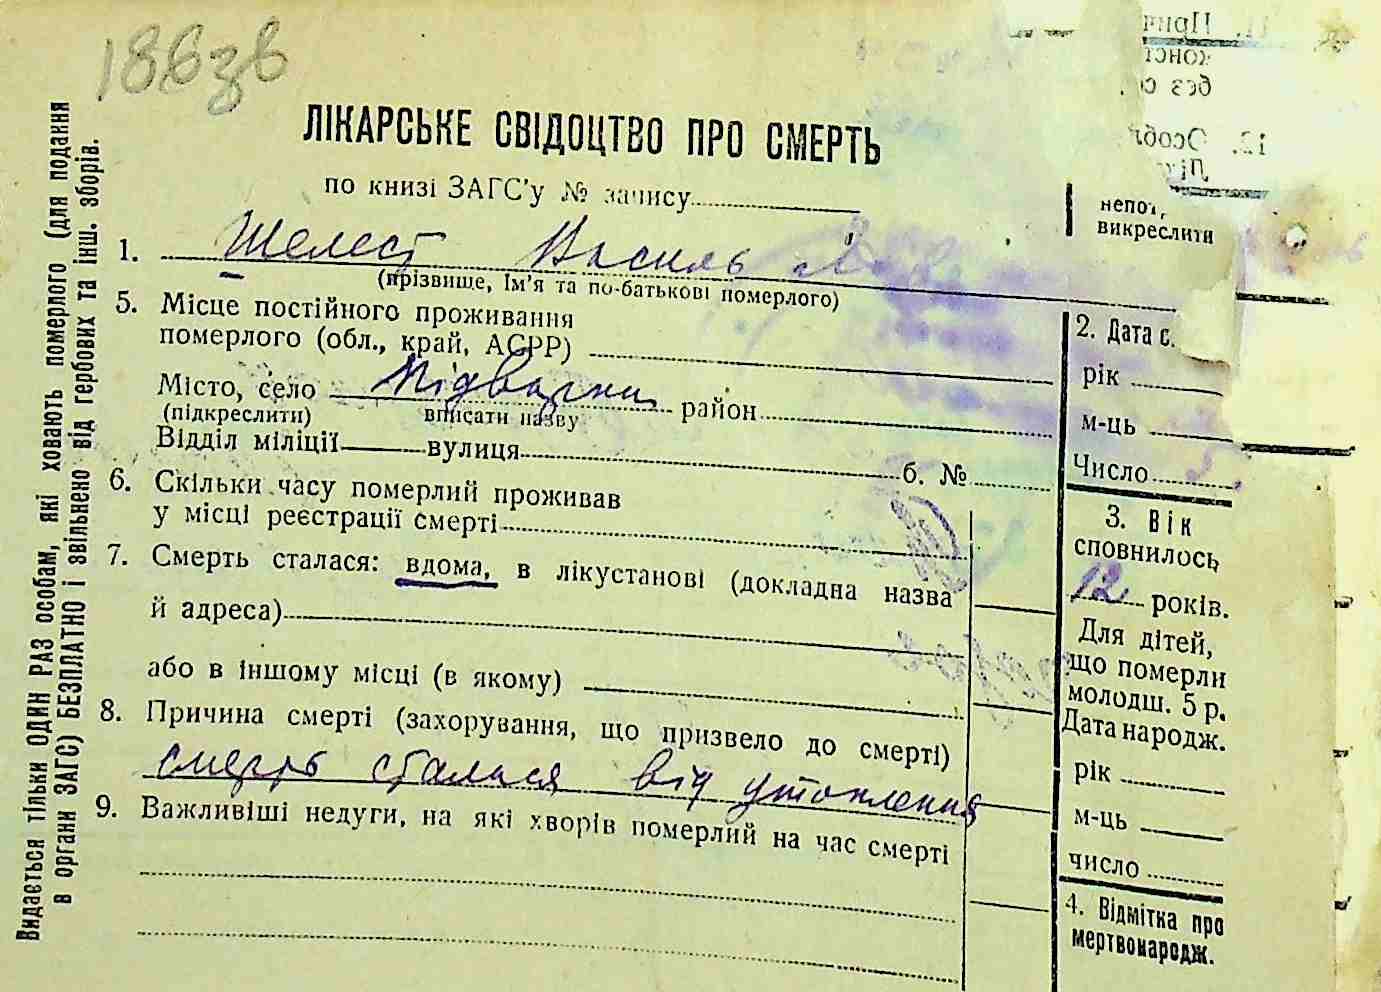 186зв
ЛІКАРСЬКЕ СВІДОЦТВО ПРО СМЕРТЬ
по книзі ЗАГС'у № запису
1. Шелест Василь
(прізвище, Ім'я та по-батькові померлого)
5. Місце постійного проживання
померлого (обл., край, АСРР)
Місто, село Підварки район
(підкреслити) вписати назву
Відділ міліції вулиця б. №
6. Скільки часу померлий проживав
у місці реєстрації смерті
7. Смерть сталася: вдома, в лікустанові (докладна назва
й адреса)
або в іншому місці (в якому)
8. Причина смерті (захорування, що призвело до смерті)
смерть сталася від утоплення
9. Важливіші недуги, на які хворів померлий на час смерті
викреслити
2. Дата с.
рік
м-ць
Число 5
3. Вік
сповнилось
12 років.
Для дітей,
що померли
молодш. 5 р.
Дата народж.
рік
м-ць
число
4. Відмітка про
мертвонародж.
Видається тільки ОДИН РАЗ особам, які ховають померлого (для подання
в органи ЗАГС) БЕЗПЛАТНО і звільнено від гербових та інш. зборів.